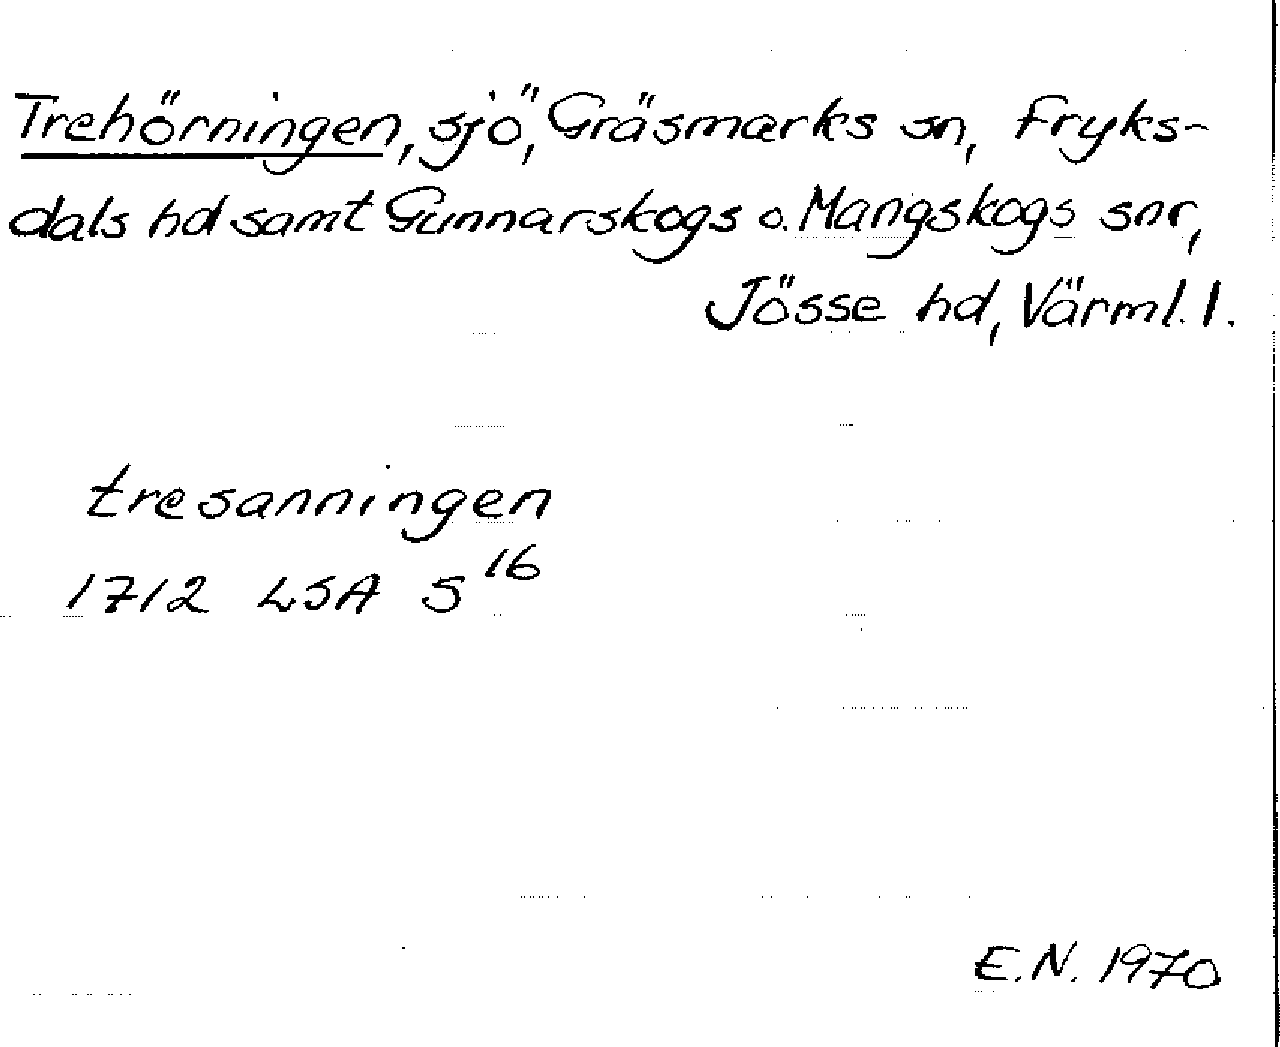 Trehörningen, sjö, Gräsmarks sn, Fryks-
dals hd samt Gunnarskogs o. Mangskogs snr,
Jösse hd, Värml. l.
tresanningen
1712 LSA S¹⁶
E.N. 1970